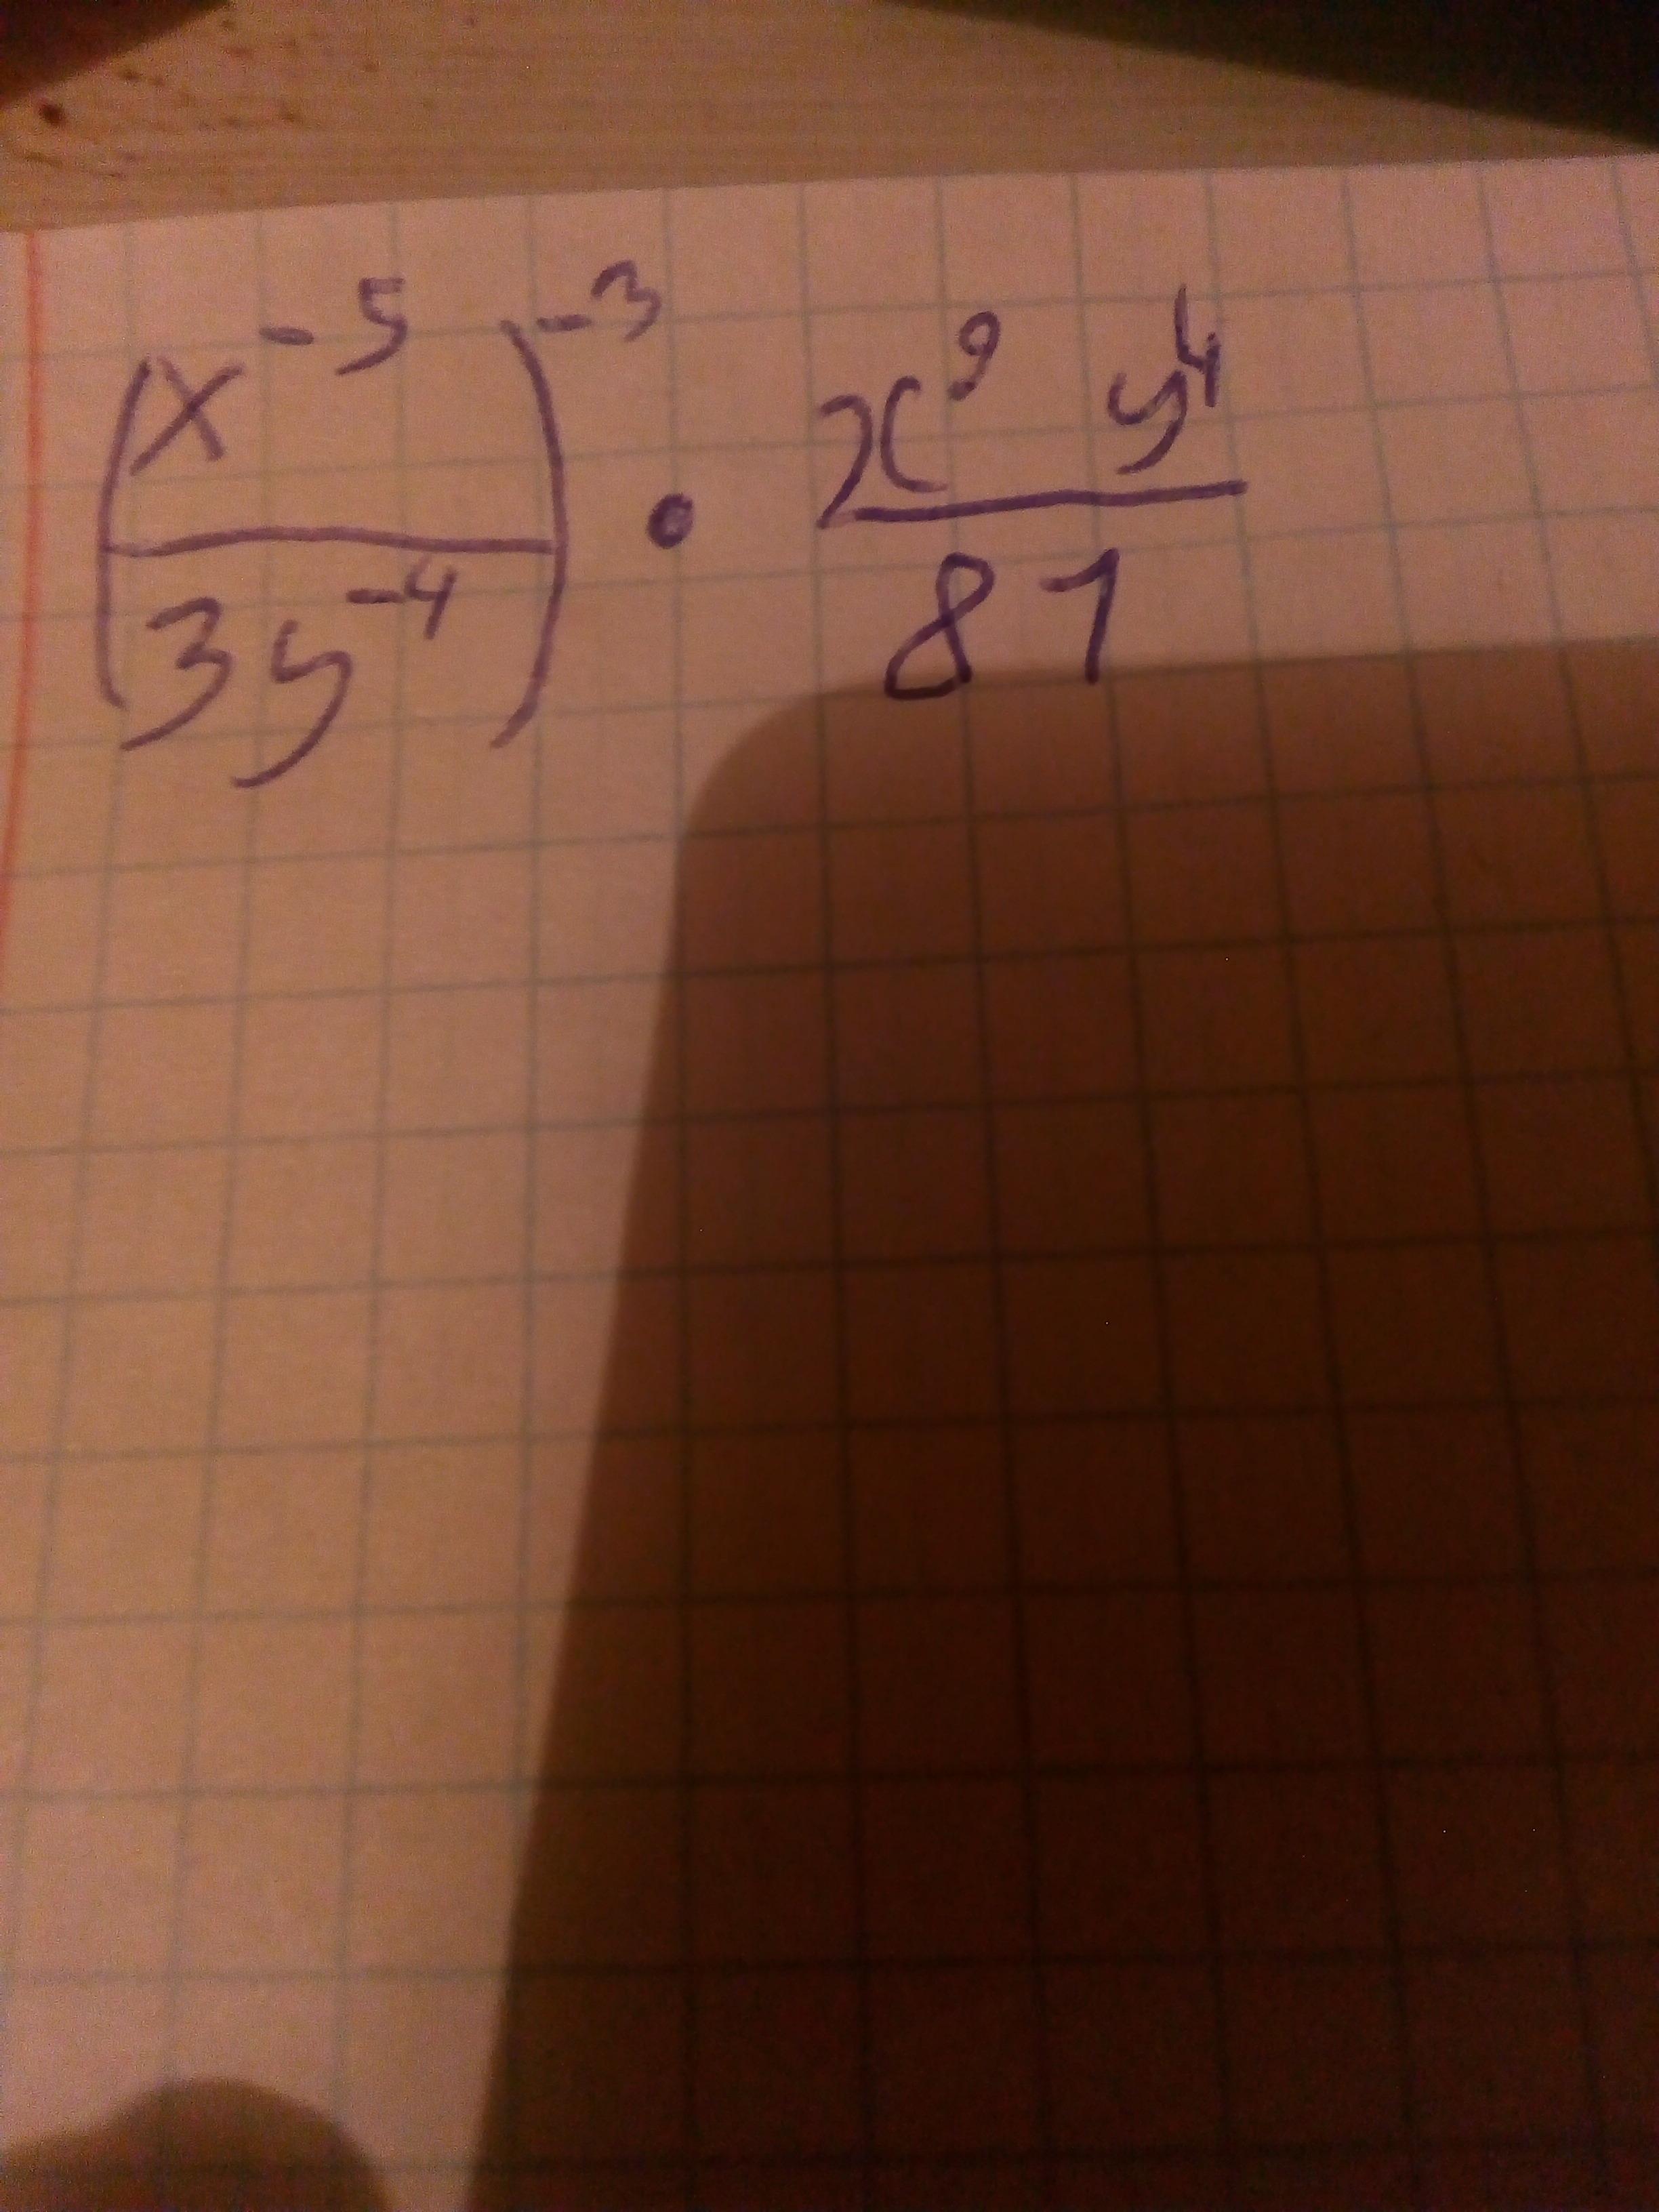 (x^-5 / 3y^-4)^-3 · x^9 y^4 / 81